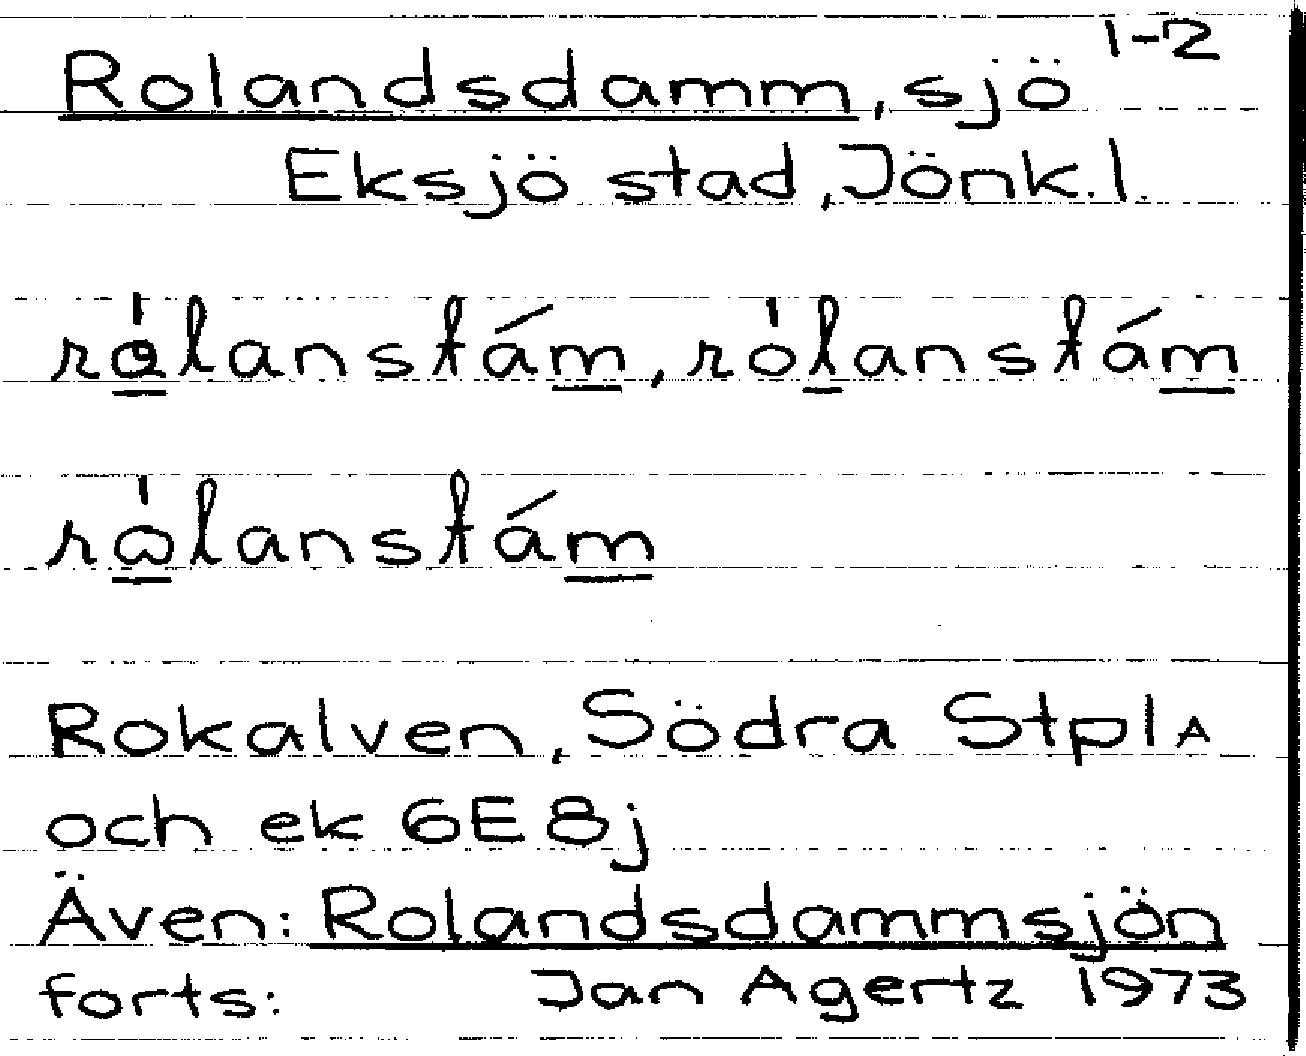 Rolandsdamm, sjö 1-2
Eksjö stad, Jönk.l.
rålanstám, rólanstám
rålanstám
Rokalven, Södra Stpl A
och ek 6E8j
Även: Rolandsdammsjön
forts: Jan Agertz 1973